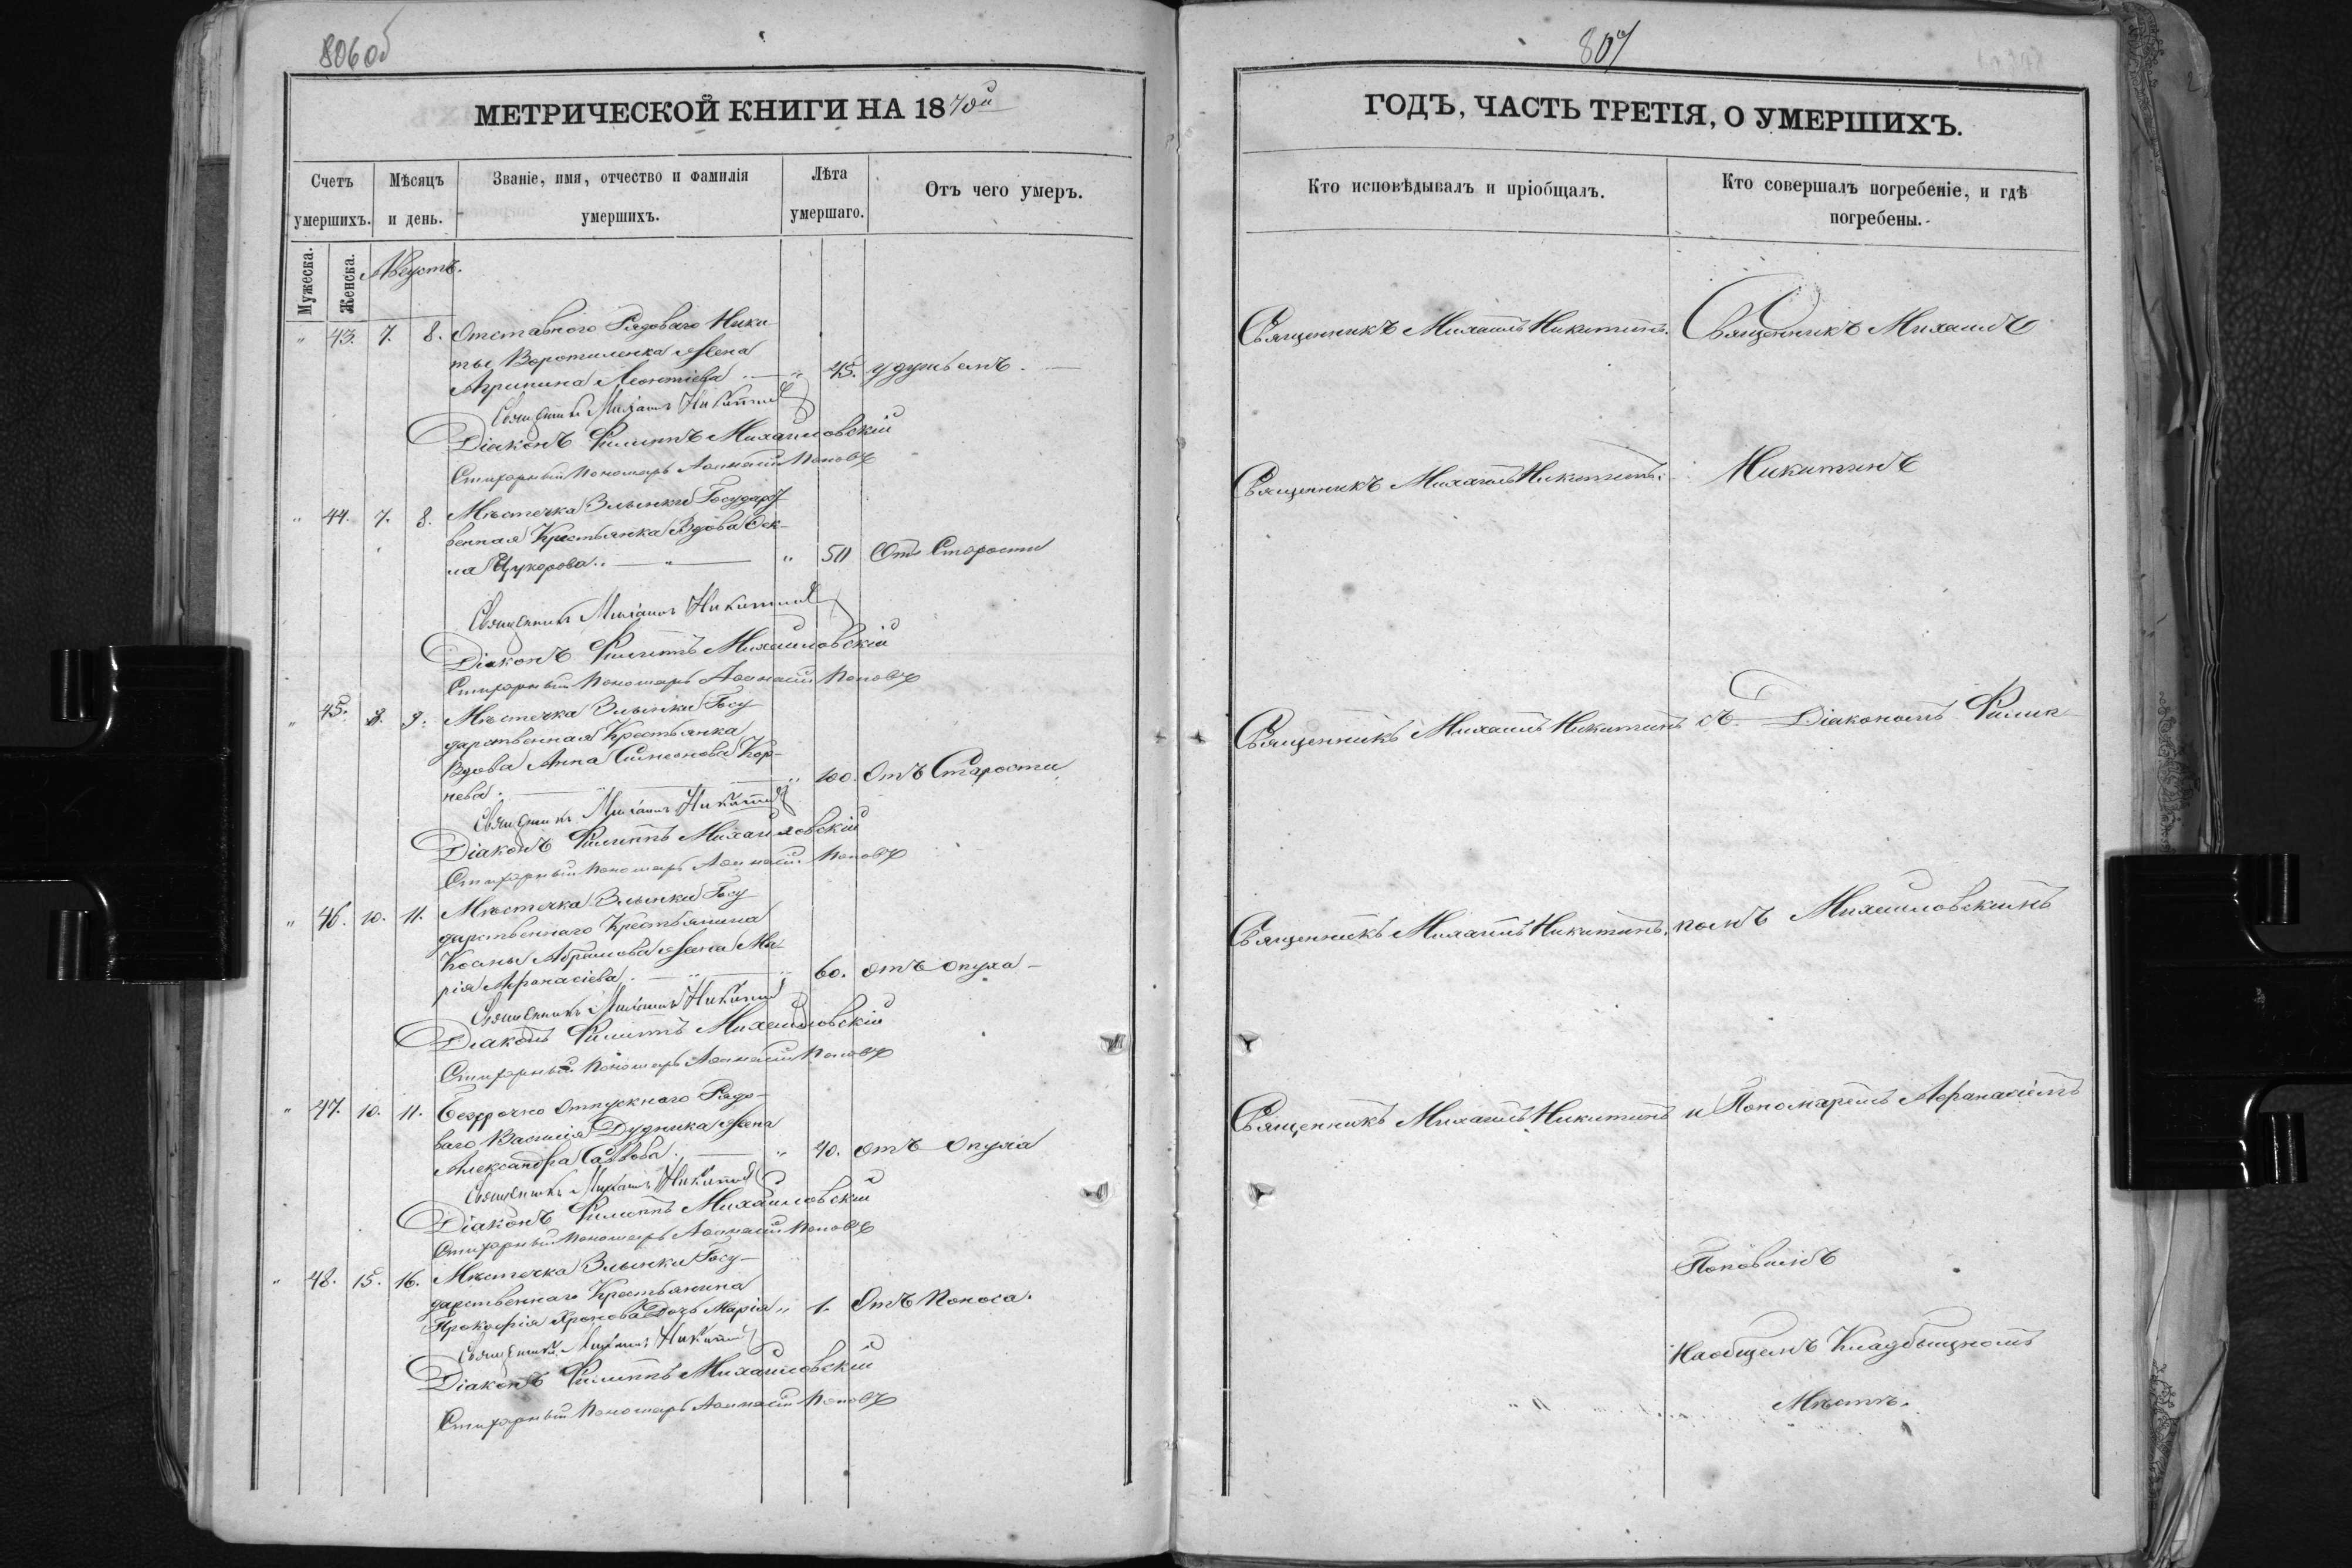 806об
МЕТРИЧЕСКОЙ КНИГИ НА 1870й
Счетъ умершихъ.
Мѣсяцъ и день.
Званіе, имя, отчество и фамилія умершихъ.
Лѣта умершаго.
Отъ чего умеръ.
Мужеска.
Женска.
Августъ.
" 43. 7. 8. Отставного Рядоваго Ники-
ты Воротиленка жена
Агрипина Леонтіева " 45. удушьемъ.
Священникъ Михаилъ Никитинъ
Діаконъ Филиппъ Михайловскій
Стихарный Пономарь Аѳанасій Поповъ
" 44. 7. 8. Мѣстечка Злынки Государст
венная Крестьянка Вдова Ѳек-
ла Цукорова. " " 50 Отъ Старости
Священникъ Михаилъ Никитинъ
Діаконъ Филиппъ Михайловскій
Стихарный Пономарь Аѳанасій Поповъ
" 45. 8. 9. Мѣстечка Злынки Госу
дарственная Крестьянка
Вдова Анна Симеонова Кор-
нева. " 100. Отъ Старости
Священникъ Михаилъ Никитинъ
Діаконъ Филиппъ Михайловскій
Стихарный Пономарь Аѳанасій Поповъ
" 46. 10. 11. Мѣстечка Злынки Госу
дарственнаго Крестьянина
Космы Абрамова жена Ма-
рія Афанасіева. " " 60. отъ опуха
Священникъ Михаилъ Никитинъ
Діаконъ Филиппъ Михайловскій
Стихарный Пономарь Аѳанасій Поповъ
" 47. 10. 11. Безсрочно Отпускнаго Рядо-
ваго Василія Дудника жена
Александра Саввова. " 40. отъ опуха
Священникъ Михаилъ Никитинъ
Діаконъ Филиппъ Михайловскій
Стихарный Пономарь Аѳанасій Поповъ
" 48. 15. 16. Мѣстечка Злынки Госу-
дарственнаго Крестьянина
Прокофія Дочь Марія " 1. Отъ Поноса.
Священникъ Михаилъ Никитинъ
Діаконъ Филиппъ Михайловскій
Стихарный Пономарь Аѳанасій Поповъ
807
ГОДЪ, ЧАСТЬ ТРЕТІЯ, О УМЕРШИХЪ.
Кто исповѣдывалъ и пріобщалъ.
Кто совершалъ погребеніе, и гдѣ погребены.
Священникъ Михаилъ Никитинъ. Священникъ Михаилъ
Священникъ Михаилъ Никитинъ. Никитинъ
Священникъ Михаилъ Никитинъ съ Діакономъ Филип
Священникъ Михаилъ Никитинъ. помъ Михайловскимъ
Священникъ Михаилъ Никитинъ и Пономаремъ Афанасіемъ
Поповымъ
На общемъ Кладбищномъ
Мѣстѣ.